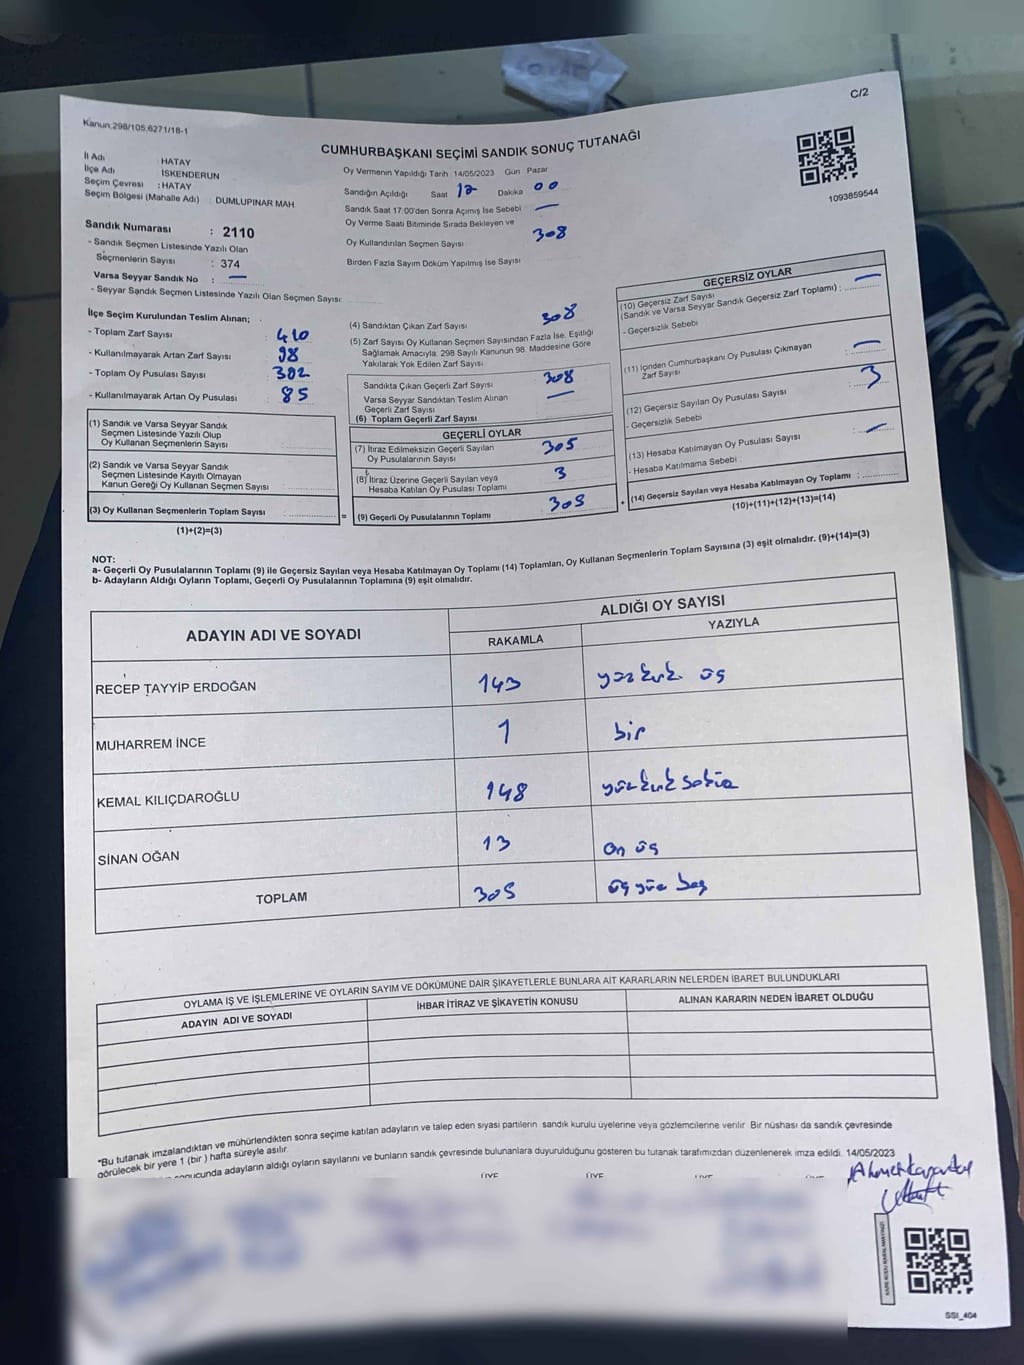 C/2
Kanun:298/105,6271/18-1
CUMHURBAŞKANI SEÇİMİ SANDIK SONUÇ TUTANAĞI
İl Adı HATAY
İlçe Adı İSKENDERUN
Seçim Çevresi : HATAY
Seçim Bölgesi (Mahalle Adı) : DUMLUPINAR MAH
Sandık Numarası : 2110
- Sandık Seçmen Listesinde Yazılı Olan
Seçmenlerin Sayısı : 374
Varsa Seyyar Sandık No : —
- Seyyar Sandık Seçmen Listesinde Yazılı Olan Seçmen Sayısı:
Oy Vermenin Yapıldığı Tarih 14/05/2023 Gün Pazar
Sandığın Açıldığı Saat 17 Dakika 00
Sandık Saat 17:00'den Sonra Açımış İse Sebebi : —
Oy Verme Saati Bitiminde Sırada Bekleyen ve
Oy Kullandırılan Seçmen Sayısı 308
Birden Fazla Sayım Döküm Yapılmış İse Sayısı
1093859544
İlçe Seçim Kurulundan Teslim Alınan;
- Toplam Zarf Sayısı : 410
- Kullanılmayarak Artan Zarf Sayısı : 98
- Toplam Oy Pusulası Sayısı : 302
- Kullanılmayarak Artan Oy Pusulası : 85
(1) Sandık ve Varsa Seyyar Sandık
Seçmen Listesinde Yazılı Olup
Oy Kullanan Seçmenlerin Sayısı
(2) Sandık ve Varsa Seyyar Sandık
Seçmen Listesinde Kayıtlı Olmayan
Kanun Gereği Oy Kullanan Seçmen Sayısı
(3) Oy Kullanan Seçmenlerin Toplam Sayısı
(1)+(2)=(3)
=
(4) Sandıktan Çıkan Zarf Sayısı 308
(5) Zarf Sayısı Oy Kullanan Seçmen Sayısından Fazla İse, Eşitliği
Sağlamak Amacıyla, 298 Sayılı Kanunun 98. Maddesine Göre
Yakılarak Yok Edilen Zarf Sayısı
Sandıkta Çıkan Geçerli Zarf Sayısı 308
Varsa Seyyar Sandıktan Teslim Alınan
Geçerli Zarf Sayısı —
(6) Toplam Geçerli Zarf Sayısı
GEÇERLİ OYLAR
(7) İtiraz Edilmeksizin Geçerli Sayılan
Oy Pusulalarının Sayısı 305
(8) İtiraz Üzerine Geçerli Sayılan veya
Hesaba Katılan Oy Pusulası Toplamı 3
(9) Geçerli Oy Pusulalarının Toplamı 305
+
GEÇERSİZ OYLAR
(10) Geçersiz Zarf Sayısı
(Sandık ve Varsa Seyyar Sandık Geçersiz Zarf Toplamı) : —
- Geçersizlik Sebebi
(11) İçinden Cumhurbaşkanı Oy Pusulası Çıkmayan
Zarf Sayısı : —
(12) Geçersiz Sayılan Oy Pusulası Sayısı : 3
- Geçersizlik Sebebi
(13) Hesaba Katılmayan Oy Pusulası Sayısı : —
- Hesaba Katılmama Sebebi
(14) Geçersiz Sayılan veya Hesaba Katılmayan Oy Toplamı :
(10)+(11)+(12)+(13)=(14)
NOT:
a- Geçerli Oy Pusulalarının Toplamı (9) ile Geçersiz Sayılan veya Hesaba Katılmayan Oy Toplamı (14) Toplamları, Oy Kullanan Seçmenlerin Toplam Sayısına (3) eşit olmalıdır. (9)+(14)=(3)
b- Adayların Aldığı Oyların Toplamı, Geçerli Oy Pusulalarının Toplamına (9) eşit olmalıdır.
ADAYIN ADI VE SOYADI
ALDIĞI OY SAYISI
RAKAMLA YAZIYLA
RECEP TAYYİP ERDOĞAN 143 yüz kırk üç
MUHARREM İNCE 1 bir
KEMAL KILIÇDAROĞLU 148 yüz kırk sekiz
SİNAN OĞAN 13 on üç
TOPLAM 305 üç yüz beş
OYLAMA İŞ VE İŞLEMLERİNE VE OYLARIN SAYIM VE DÖKÜMÜNE DAİR ŞİKAYETLERLE BUNLARA AİT KARARLARIN NELERDEN İBARET BULUNDUKLARI
ADAYIN ADI VE SOYADI İHBAR İTİRAZ VE ŞİKAYETİN KONUSU ALINAN KARARIN NEDEN İBARET OLDUĞU
*Bu tutanak imzalandıktan ve mühürlendikten sonra seçime katılan adayların ve talep eden siyasi partilerin sandık kurulu üyelerine veya gözlemcilerine verilir. Bir nüshası da sandık çevresinde
görülecek bir yere 1 (bir) hafta süreyle asılır.
sonucunda adayların aldığı oyların sayılarını ve bunların sandık çevresinde bulunanlara duyurulduğunu gösteren bu tutanak tarafımızdan düzenlenerek imza edildi. 14/05/2023
ÜYE ÜYE ÜYE
SSI_404